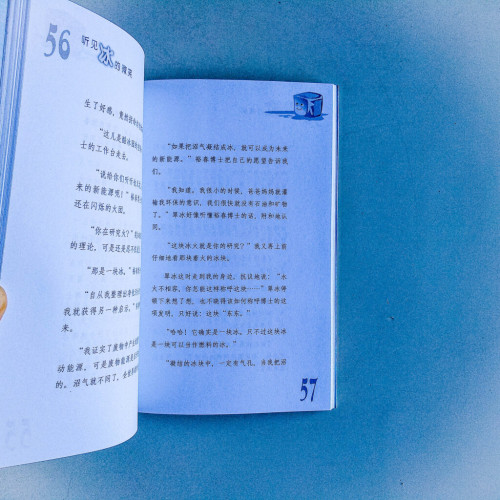 56
听见冰的微笑
生了好感，竟然
"这儿是酷冰
士的工作台来去。
"说给你们听听
来的新能源呢！"
还在闪烁的火团。
"你在研究火？"
的理论。可是还是忍不住
"那是一块冰。"
"自从我整理出
我就获得另一种启示。"
来。
"我证实了废物中产
动能源。可是废物能源
的。沼气就不同了，
"如果把沼气凝结成冰，就可以成为未来
的新能源。"裕春博士把自己的愿望告诉我
们。
"我知道。我很小的时候，爸爸妈妈就灌
输我环保的意识，我们很快就没有石油和矿物
了。"草冰好像听懂裕春博士的话，附和地认
同。
"这块冰火就是你的研究？"我又再上前
仔细地看那块最大的冰块。
草冰这时走到我的身边，抗议地说："水
火不相容，你怎能这样称呼这块……"草冰停
顿下来想了想，也不晓得该如何称呼博士的这
项发明，只好说：这块"东东。"
"哈哈！它确实是一块冰。只不过这块冰
是一块可以当作燃料的冰。"
"凝结的冰块中，一定有气孔，当我把沼
57